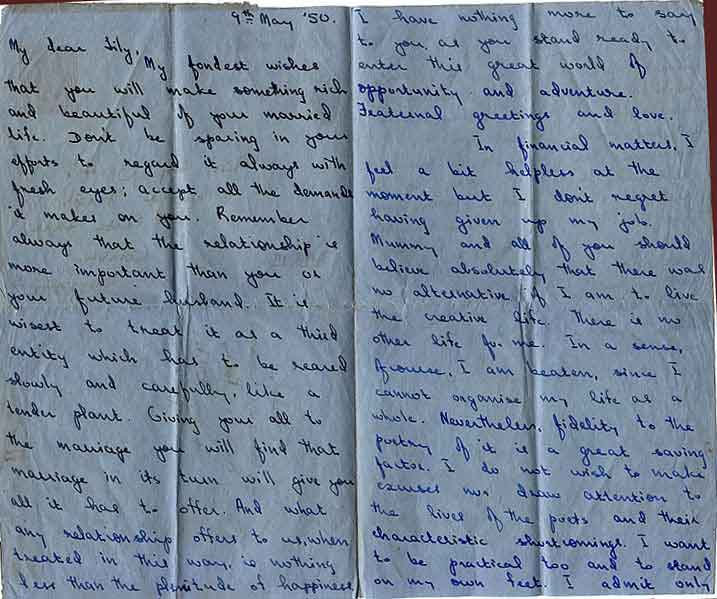 9th May '50.
My dear Lily,
My fondest wishes
that you will make something rich
and beautiful of your married
life. Don't be sparing in your
efforts to regard it always with
fresh eyes; accept all the demands
it makes on you. Remember
always that the relationship is
more important than you or
your future husband. It is
wisest to treat it as a third
entity which has to be reared
slowly and carefully, like a
tender plant. Giving your all to
the marriage you will find that
marriage in its turn will give you
all it has to offer. And what
any relationship offers to us, when
treated in this way, is nothing
less than the plenitude of happiness
I have nothing more to say
to you, as you stand ready to
enter this great world of
opportunity and adventure.
Fraternal greetings and love.
In financial matters, I
feel a bit helpless at the
moment but I don't regret
having given up my job.
Mummy and all of you should
believe absolutely that there was
no alternative if I am to live
the creative life. There is no
other life for me. In a sense,
of course, I am beaten, since I
cannot organise my life as a
whole. Nevertheless, fidelity to the
poetry of it is a great saving
factor. I do not wish to make
excuses nor draw attention to
the lives of the poets and their
characteristic shortcomings. I want
to be practical too and to stand
on my own feet. I admit only